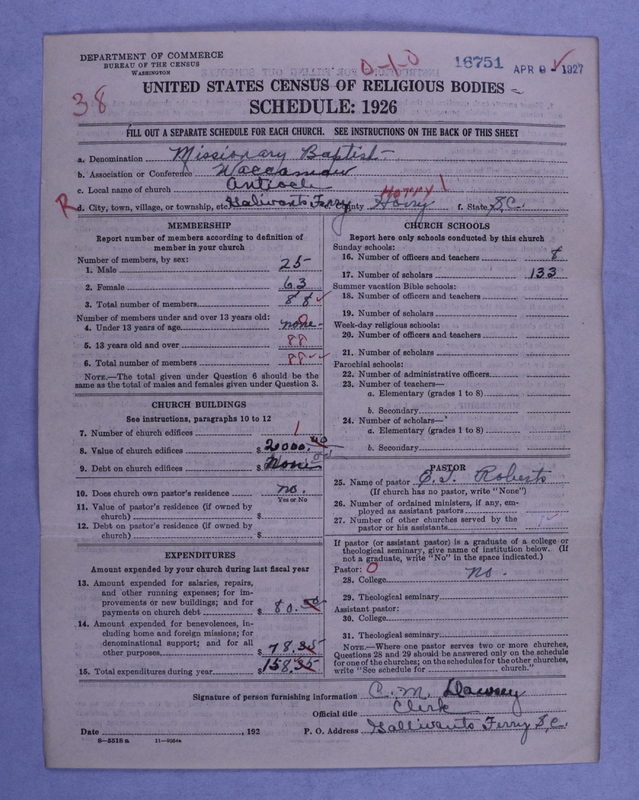 DEPARTMENT OF COMMERCE
BUREAU OF THE CENSUS
WASHINGTON
0-1-0
16751
APR 9 - 1927
38
UNITED STATES CENSUS OF RELIGIOUS BODIES
SCHEDULE: 1926
FILL OUT A SEPARATE SCHEDULE FOR EACH CHURCH. SEE INSTRUCTIONS ON THE BACK OF THIS SHEET
a. Denomination Missionary Baptist
b. Association or Conference Waccamaw
c. Local name of church Antioch
Horry 1
R d. City, town, village, or township, etc. Galivants Ferry e. County Horry f. State S.C.
MEMBERSHIP
Report number of members according to definition of member in your church
Number of members, by sex:
1. Male 25
2. Female 63
3. Total number of members 88
Number of members under and over 13 years old:
4. Under 13 years of age none
5. 13 years old and over 88
6. Total number of members 88
NOTE.—The total given under Question 6 should be the
same as the total of males and females given under Question 3.
CHURCH BUILDINGS
See instructions, paragraphs 10 to 12
7. Number of church edifices 1
8. Value of church edifices $ 2000.00
9. Debt on church edifices $ None
10. Does church own pastor's residence no.
Yes or No
11. Value of pastor's residence (if owned by
church) $
12. Debt on pastor's residence (if owned by
church) $
EXPENDITURES
Amount expended by your church during last fiscal year
13. Amount expended for salaries, repairs,
and other running expenses; for im-
provements or new buildings; and for
payments on church debt $ 80.00
14. Amount expended for benevolences, in-
cluding home and foreign missions; for
denominational support; and for all
other purposes $ 78.35
15. Total expenditures during year $ 158.35
CHURCH SCHOOLS
Report here only schools conducted by this church
Sunday schools:
16. Number of officers and teachers 8
17. Number of scholars 133
Summer vacation Bible schools:
18. Number of officers and teachers
19. Number of scholars
Week-day religious schools:
20. Number of officers and teachers
21. Number of scholars
Parochial schools:
22. Number of administrative officers
23. Number of teachers—
a. Elementary (grades 1 to 8)
b. Secondary
24. Number of scholars—
a. Elementary (grades 1 to 8)
b. Secondary
PASTOR
25. Name of pastor Roberts
(If church has no pastor, write "None")
26. Number of ordained ministers, if any, em-
ployed as assistant pastors
27. Number of other churches served by the
pastor or his assistants
If pastor (or assistant pastor) is a graduate of a college or
theological seminary, give name of institution below. (If
not a graduate, write "No" in the space indicated.)
Pastor: 0
28. College no.
29. Theological seminary
Assistant pastor:
30. College
31. Theological seminary
NOTE.—Where one pastor serves two or more churches,
Questions 28 and 29 should be answered only on the schedule
for one of the churches; on the schedules for the other churches,
write "See schedule for church."
Signature of person furnishing information C. M. Dawsey
Official title Clerk
Date , 192 P. O. Address Gallivants Ferry S.C.
8—5518 a